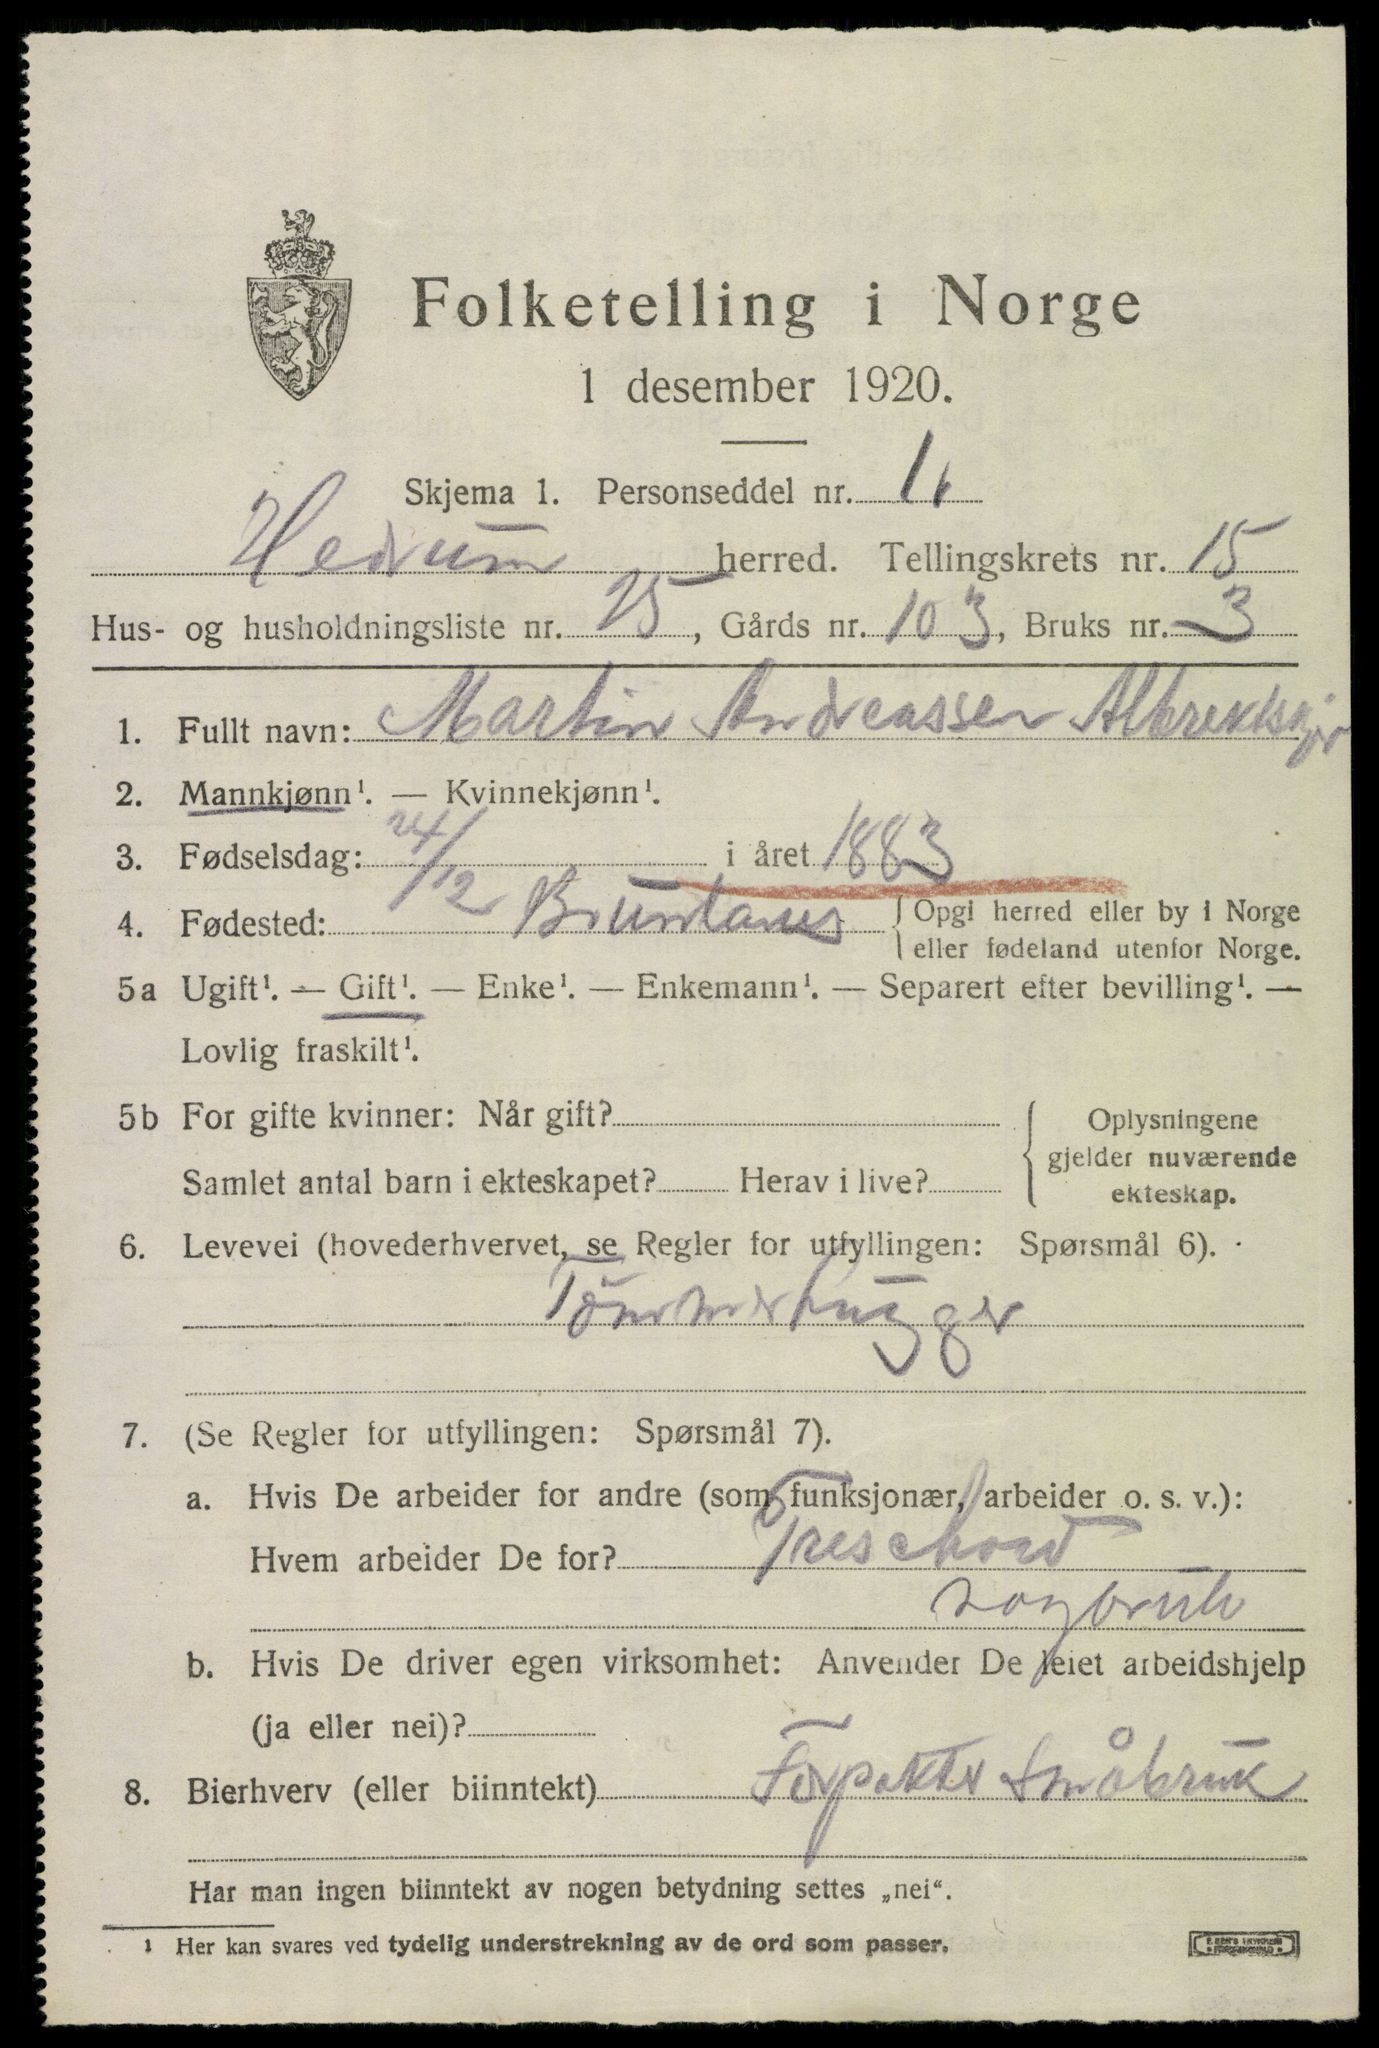 Folketelling i Norge
1 desember 1920.
Skjema 1. Personseddel nr. 1
Hedrum herred. Tellingskrets nr. 15
Hus- og husholdningsliste nr. 25, Gårds nr. 103, Bruks nr. 3
1. Fullt navn: Martin Andreassen
2. Mannkjønn¹. — Kvinnekjønn¹.
3. Fødselsdag: 24/12 i året 1883
4. Fødested: Brunlanes { Opgi herred eller by i Norge
eller fødeland utenfor Norge.
5a Ugift¹. — Gift¹. — Enke¹. — Enkemann¹. — Separert efter bevilling¹. —
Lovlig fraskilt¹.
5b For gifte kvinner: Når gift? { Oplysningene
gjelder nuværende
ekteskap.
Samlet antal barn i ekteskapet? Herav i live?
6. Levevei (hovederhvervet, se Regler for utfyllingen: Spørsmål 6).
Tömmerhugger
7. (Se Regler for utfyllingen: Spørsmål 7).
a. Hvis De arbeider for andre (som funksjonær, arbeider o. s. v.):
Hvem arbeider De for? Treschow
b. Hvis De driver egen virksomhet: Anvender De leiet arbeidshjelp
(ja eller nei)?
8. Bierhverv (eller biinntekt) Forpakter Småbruk
Har man ingen biinntekt av nogen betydning settes „nei“.
¹ Her kan svares ved tydelig understrekning av de ord som passer.